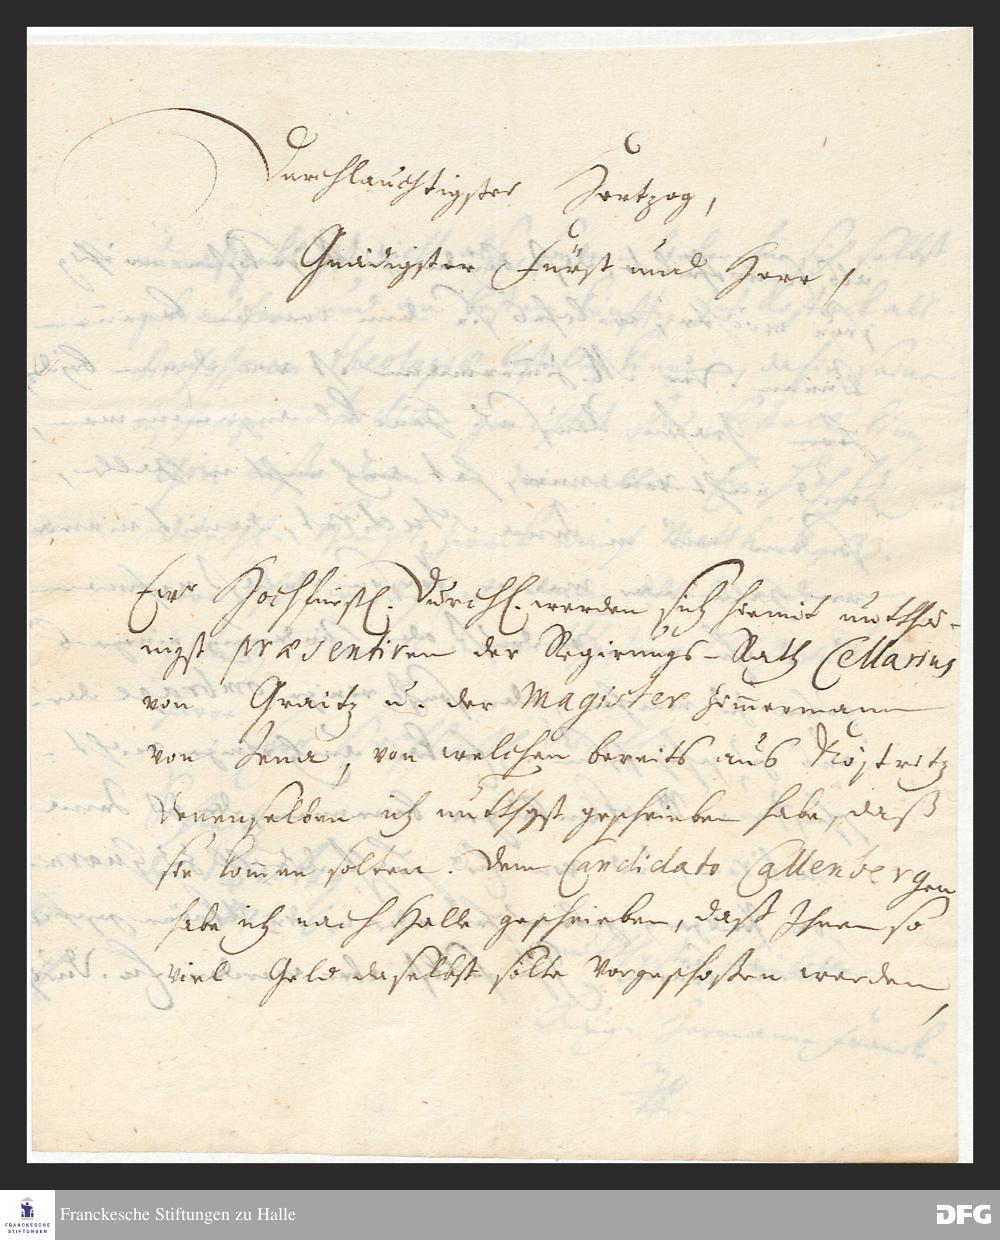 Durchlauchtigster Hertzog,
Gnädigster Fürst und Herr,
Ewr Hochfürstl. Durchl. werden sich hiemit unterthä-
nigst præsentiren der Regirungs-Rath Cellarius
von Graitz u. der Magister Zim̄ermann
von Jena, von welchen bereits aus Köstritz
Denenselben ich unterthgst geschrieben habe, daß
sie kom̄en solten. Dem Candidato Callenbergen
habe ich nach Halle geschrieben, daß Ihnen so
viel Geld daselbst solte vorgeschoßen werden,
Franckesche Stiftungen zu Halle
FRANCKESCHE
STIFTUNGEN
DFG